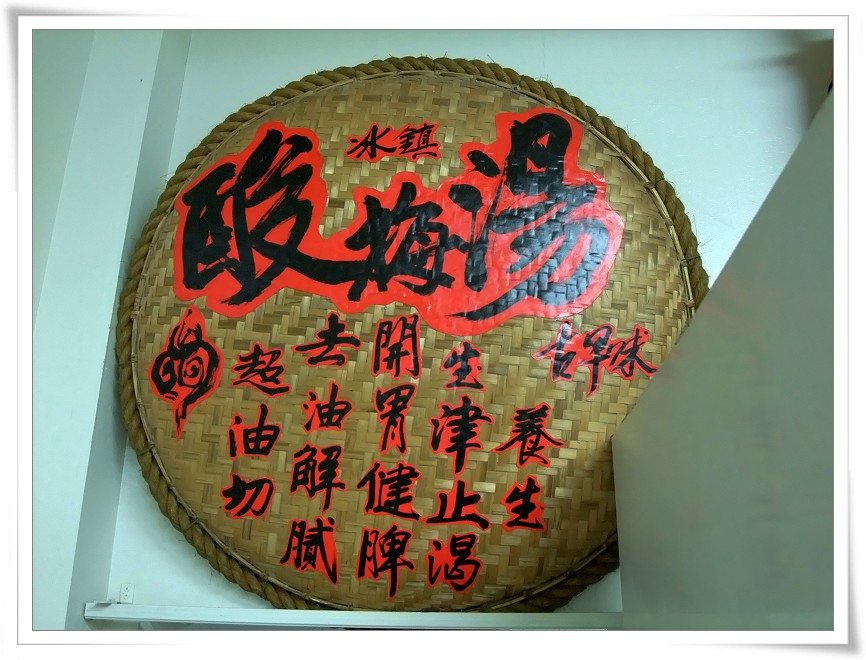 冰鎮
酸梅湯
古早味
養生
生津止渴
開胃健脾
去油解膩
超油切